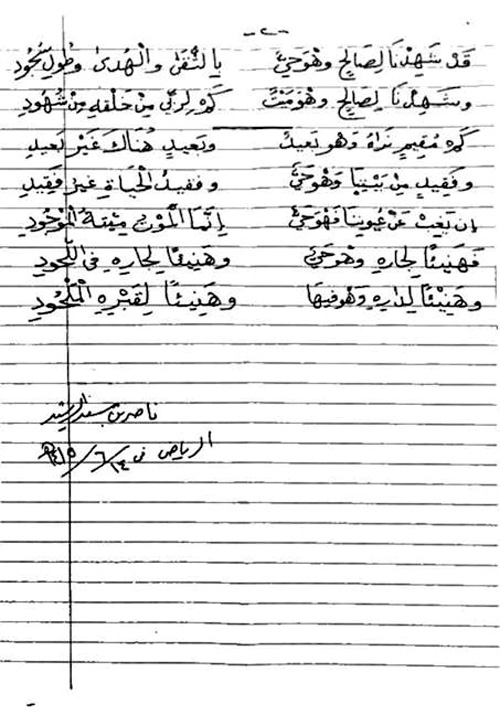 -٢-
قَدْ شَهِدْنَا لِصَالِحٍ وَهْوَ حَيٌّ بِالتُّقَى والْهُدَى وطُولِ سُجُودِ
وشَهِدْنَا لِصَالِحٍ وَهْوَ مَيْتٌ كَمْ لِرَبِّي مِنْ خَلْقِهِ مِنْ شُهُودِ
كَمْ مُقِيمٍ نَرَاهُ وَهْوَ بَعِيدٌ وبَعِيدٍ هُنَاكَ غَيْرَ بَعِيدِ
وفَقِيدٍ مِنْ بَيْنِنَا وَهْوَ حَيٌّ وفَقِيدُ الْحَيَاةِ غَيْرُ فَقِيدِ
إن يَغِبْ عَنْ عُيُونِنَا فَهْوَ حَيٌّ إِنَّمَا الْمَوْتُ مِيتَةُ الْمَوْجُودِ
فَهَنِيئًا لِجَارِهِ وَهْوَ حَيٌّ وهَنِيئًا لِجَارِهِ في اللُّحُودِ
وهَنِيئًا لِدَارِهِ وَهُوَ فِيهَا وهَنِيئًا لِقَبْرِهِ الْمَلْحُودِ
ناصر بن سعد الرشيد
الرياض في ١٤/٦/١٤١٥هـ